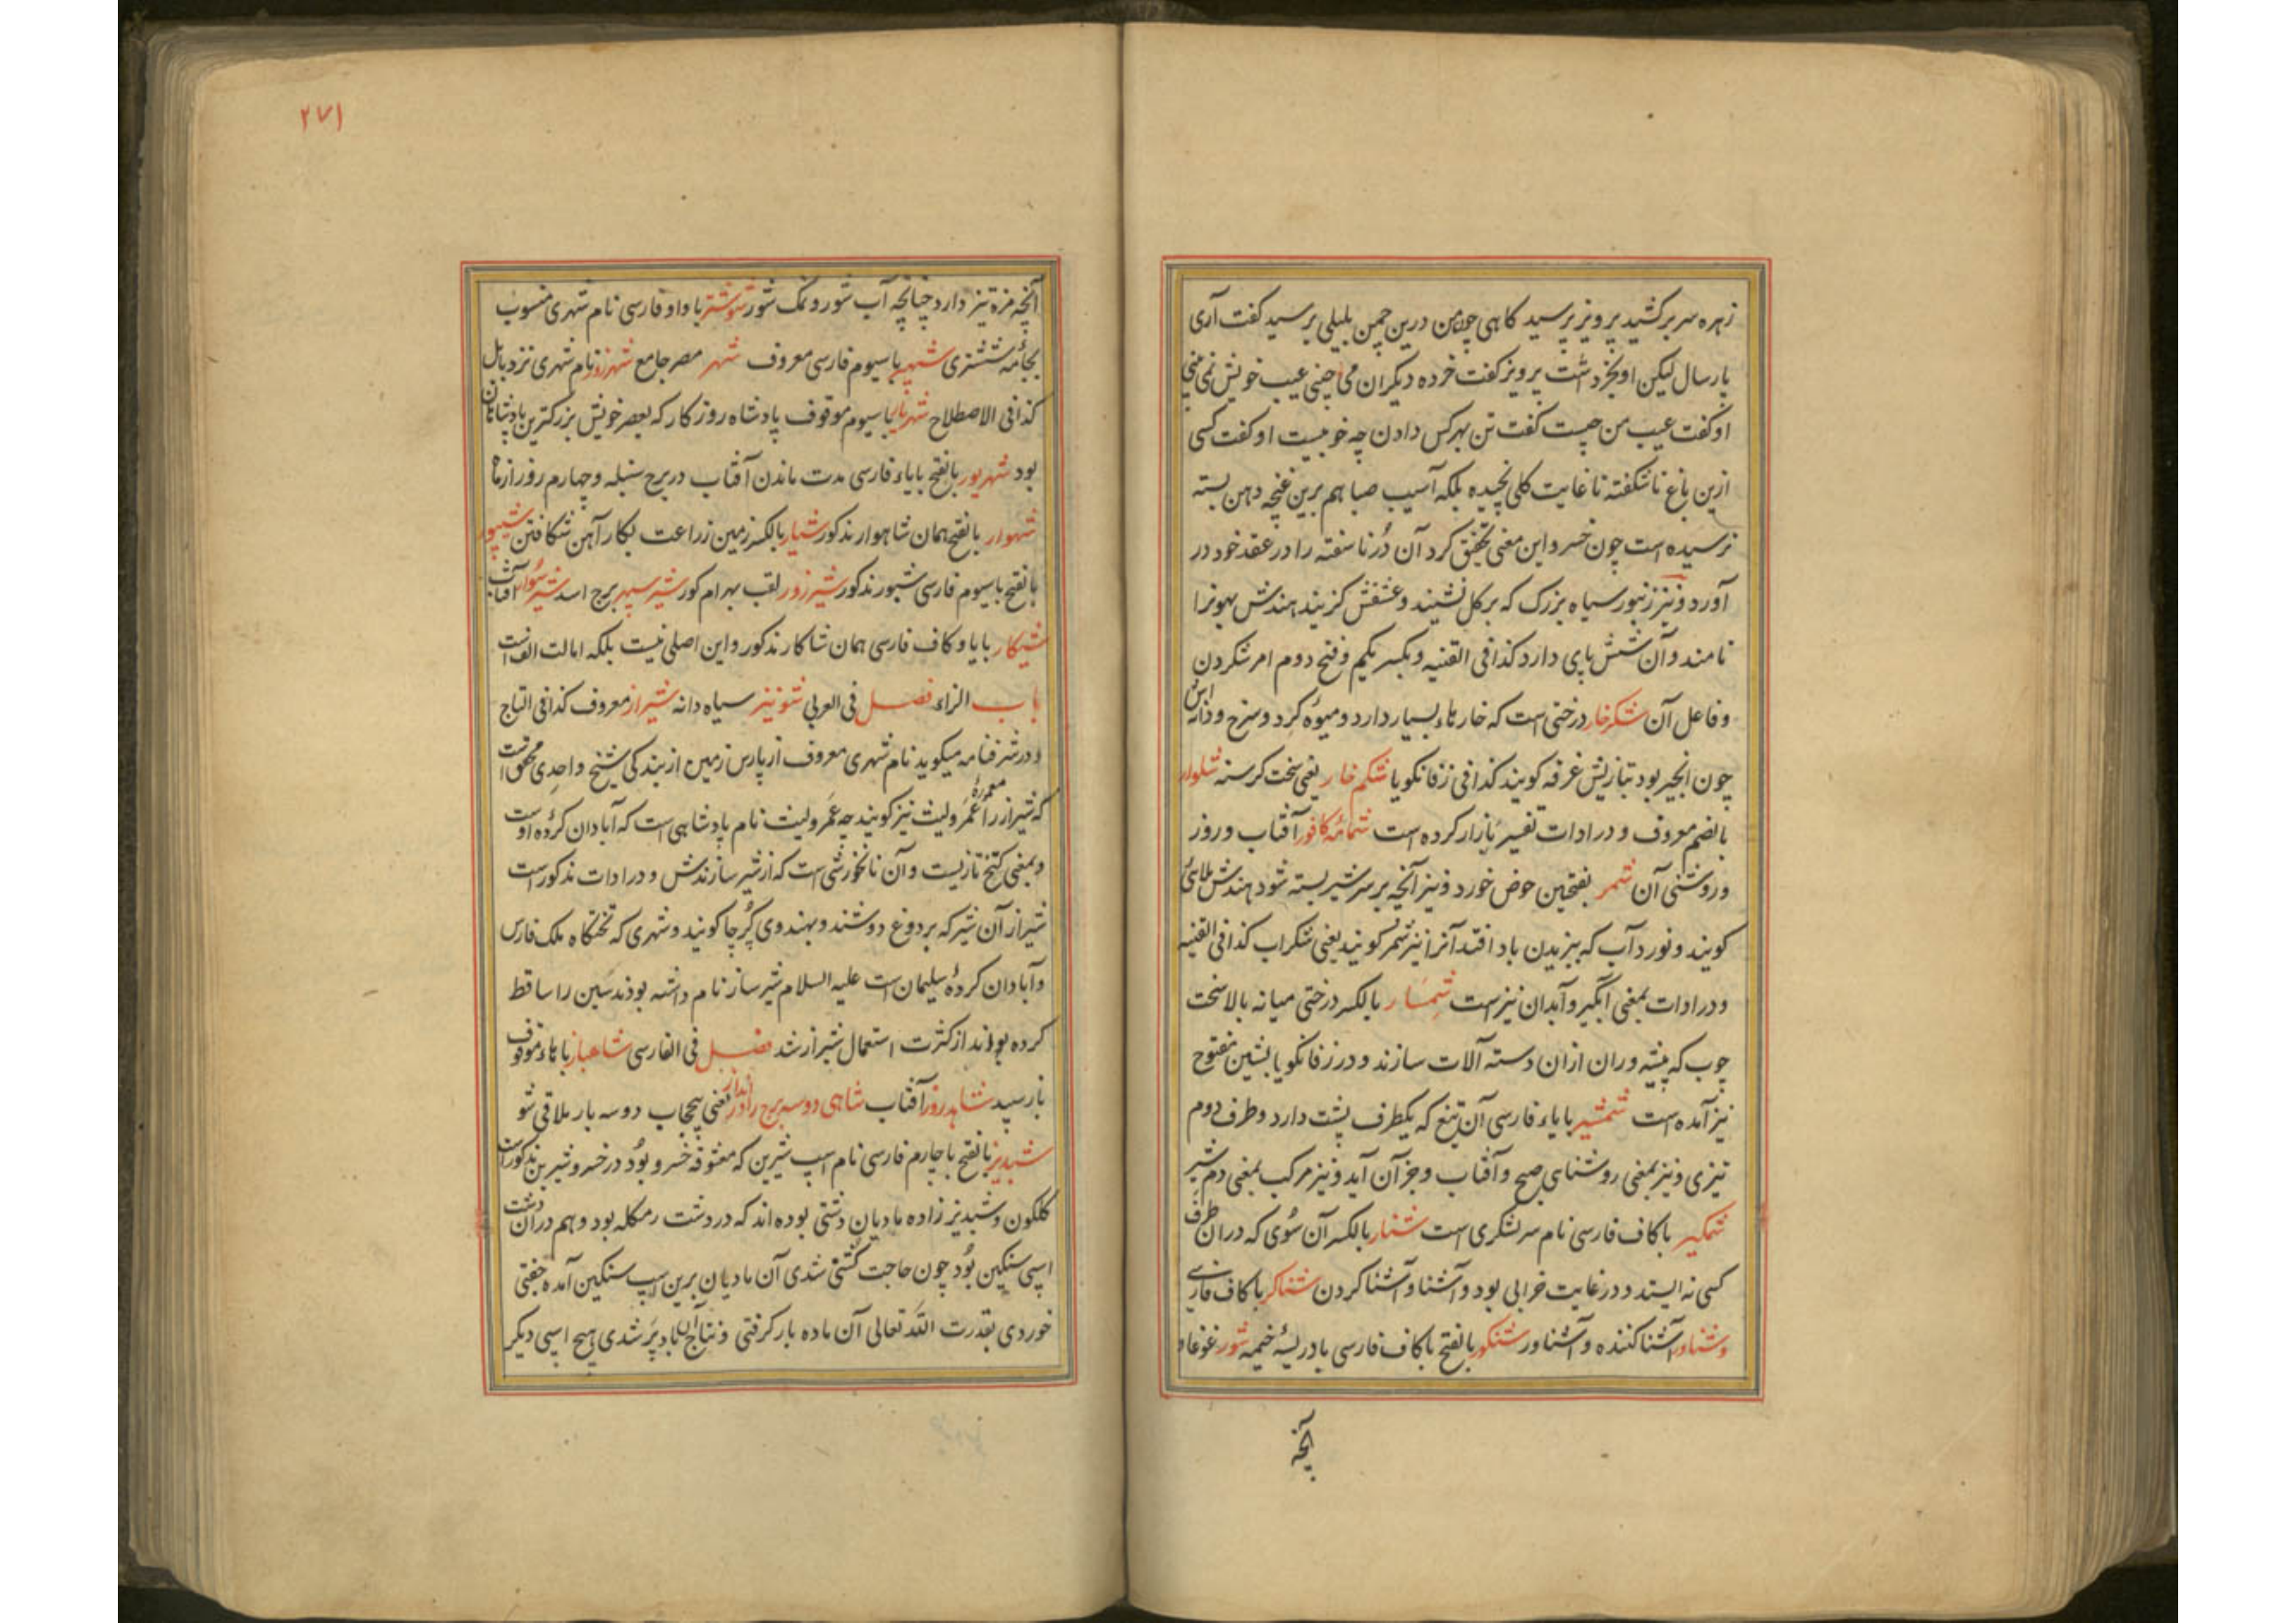 زهره سر برکشید پرویز پرسید کاهی چون من درین چمن بلبلی پرسید کفت آری
پارسال لیکن او بخرد اشت پرویز کفت خرده دیکران می چینی عیب خویش نمی بینی
او کفت عیب من چیست کفت تن بهرکس دادن چه خوبیست او کفت کسی
ازین باغ ناشکفته تا غایت کلی نچیده بلکه آسیب صبا هم برین غنچه دهن بسته
نرسیده است چون خسرو این معنی تحقیق کرد آن دُر ناسفته را در عقد خود در
آورد و نیز زنبور سیاه بزرک که بر کل نشیند و عشقش کزیند هندش بهونرا
نامند و آن شش پای دارد کذا فی القنیه و بکسر یکم و فتح دوم امر شکردن
و فاعل آن شکرخار درختی است که خارهاء بسیار دارد و میوه کرد و سرخ و دانه اش
چون انجیر بود بتازیش غرقه کویند کذا فی زفانکویا شکم خار یعنی سخت کرسنه شلوار
بالضم معروف و در ادات تفسیر بازار کرده است شمامه کافور آفتاب و روز
و روشنی آن شمر بفتحین حوض خورد و نیز آنچه بر سر شیر بسته شود هندش ملائی
کویند و نورد آب که ببزیدن باد افتد آنرا نیز شمر کویند یعنی شکراب کذا فی القنیه
و در ادات بمعنی آبگیر و آبدان نیز است شمسار بالکسر درختی میانه بالا سخت
چوب که پیشه وران ازان دسته آلات سازند و در زفانکویا بشین مفتوح
نیز آمده است شمشیر بایاء فارسی آن تیغ که یکطرف پشت دارد و طرف دوم
تیزی و نیز بمعنی روشنای صبح و آفتاب و جز آن آید و نیز مرکب بمعنی دم شیر
شمکیر باکاف فارسی نام سر لشکری است شنار بالکسر آن سُوی که دران طرف
کسی نه ایستد و در غایت خرابی بود و آشنا و آشنا کردن شناکر باکاف فارسی
و شناور آشنا کننده و آشناور شنکور بالفتح باکاف فارسی بادریسه خیمه شور غوغا و
آنچه
۲۷۱
آنچه مزه تیز دارد چنانچه آب شور و نمک شور شوشتر باواو فارسی نام شهری منسوب
بجامه ششتری شهپر باسیوم فارسی معروف شهر مصر جامع شهرزور نام شهری نزد بابل
کذا فی الاصطلاح شهریار باسیوم موقوف پادشاه روزکار که بعصر خویش بزرکترین پادشاهان
بود شهریور بالفتح بایاء فارسی مدت ماندن آفتاب در برج سنبله و چهارم روز از ماه
شهوار بالفتح همان شاهوار مذکور شیار بالکسر زمین زراعت بکار آهن شکافتن شیپور
بالفتح باسیوم فارسی شبور مذکور شیرزور لقب بهرام کور شیر سپهر برج اسد شیر سوار آفتاب
شیکار بایا و کاف فارسی همان شاکار مذکور و این اصلی نیست بلکه امالت الف است
باب الزاء فصل فی العربی شونیز سیاه دانه شیراز معروف کذا فی التاج
و در شرفنامه میکوید نام شهری معروف از پارس زمین از بندکی شیخ واحدی محقق است
که شیراز را معموره عمرولیث نیز کویند چه عمرولیث نام پادشاهی است که آبادان کرده اوست
و بمعنی کنخ تازیست و آن نانخورشی است که از شیر سازندش و در ادات مذکور است
شیراز آن شیر که بر دوغ دوشند و بهندوی کُرچا کویند و شهری که تختکاه ملک فارس
و آبادان کرده سلیمان است علیه السلام شیرساز نام داشته بودند سین را ساقط
کرده بودند از کثرت استعمال شیراز شد فصل فی الفارسی شاهباز باهاء موقوف
باز سپید شاهد روز آفتاب شاهی دو سه برج راندار یعنی بیحجاب دو سه بار ملاقی شو
شبدیز بالفتح باچارم فارسی نام اسپ شیرین که معشوقه خسرو بُود در خسرو شیرین مذکور است
کلکون و شبدیز زاده مادیان دشتی بوده اند که در دشت رمکله بود و هم دران دشت
اسپی سنکین بُود چون حاجت کشنی شدی آن مادیان برین اسپ سنکین آمده جفتی
خوردی بقدرت الله تعالی آن ماده بار کرفتی و نتاج آن باد پر شدی هیچ اسپی دیکر